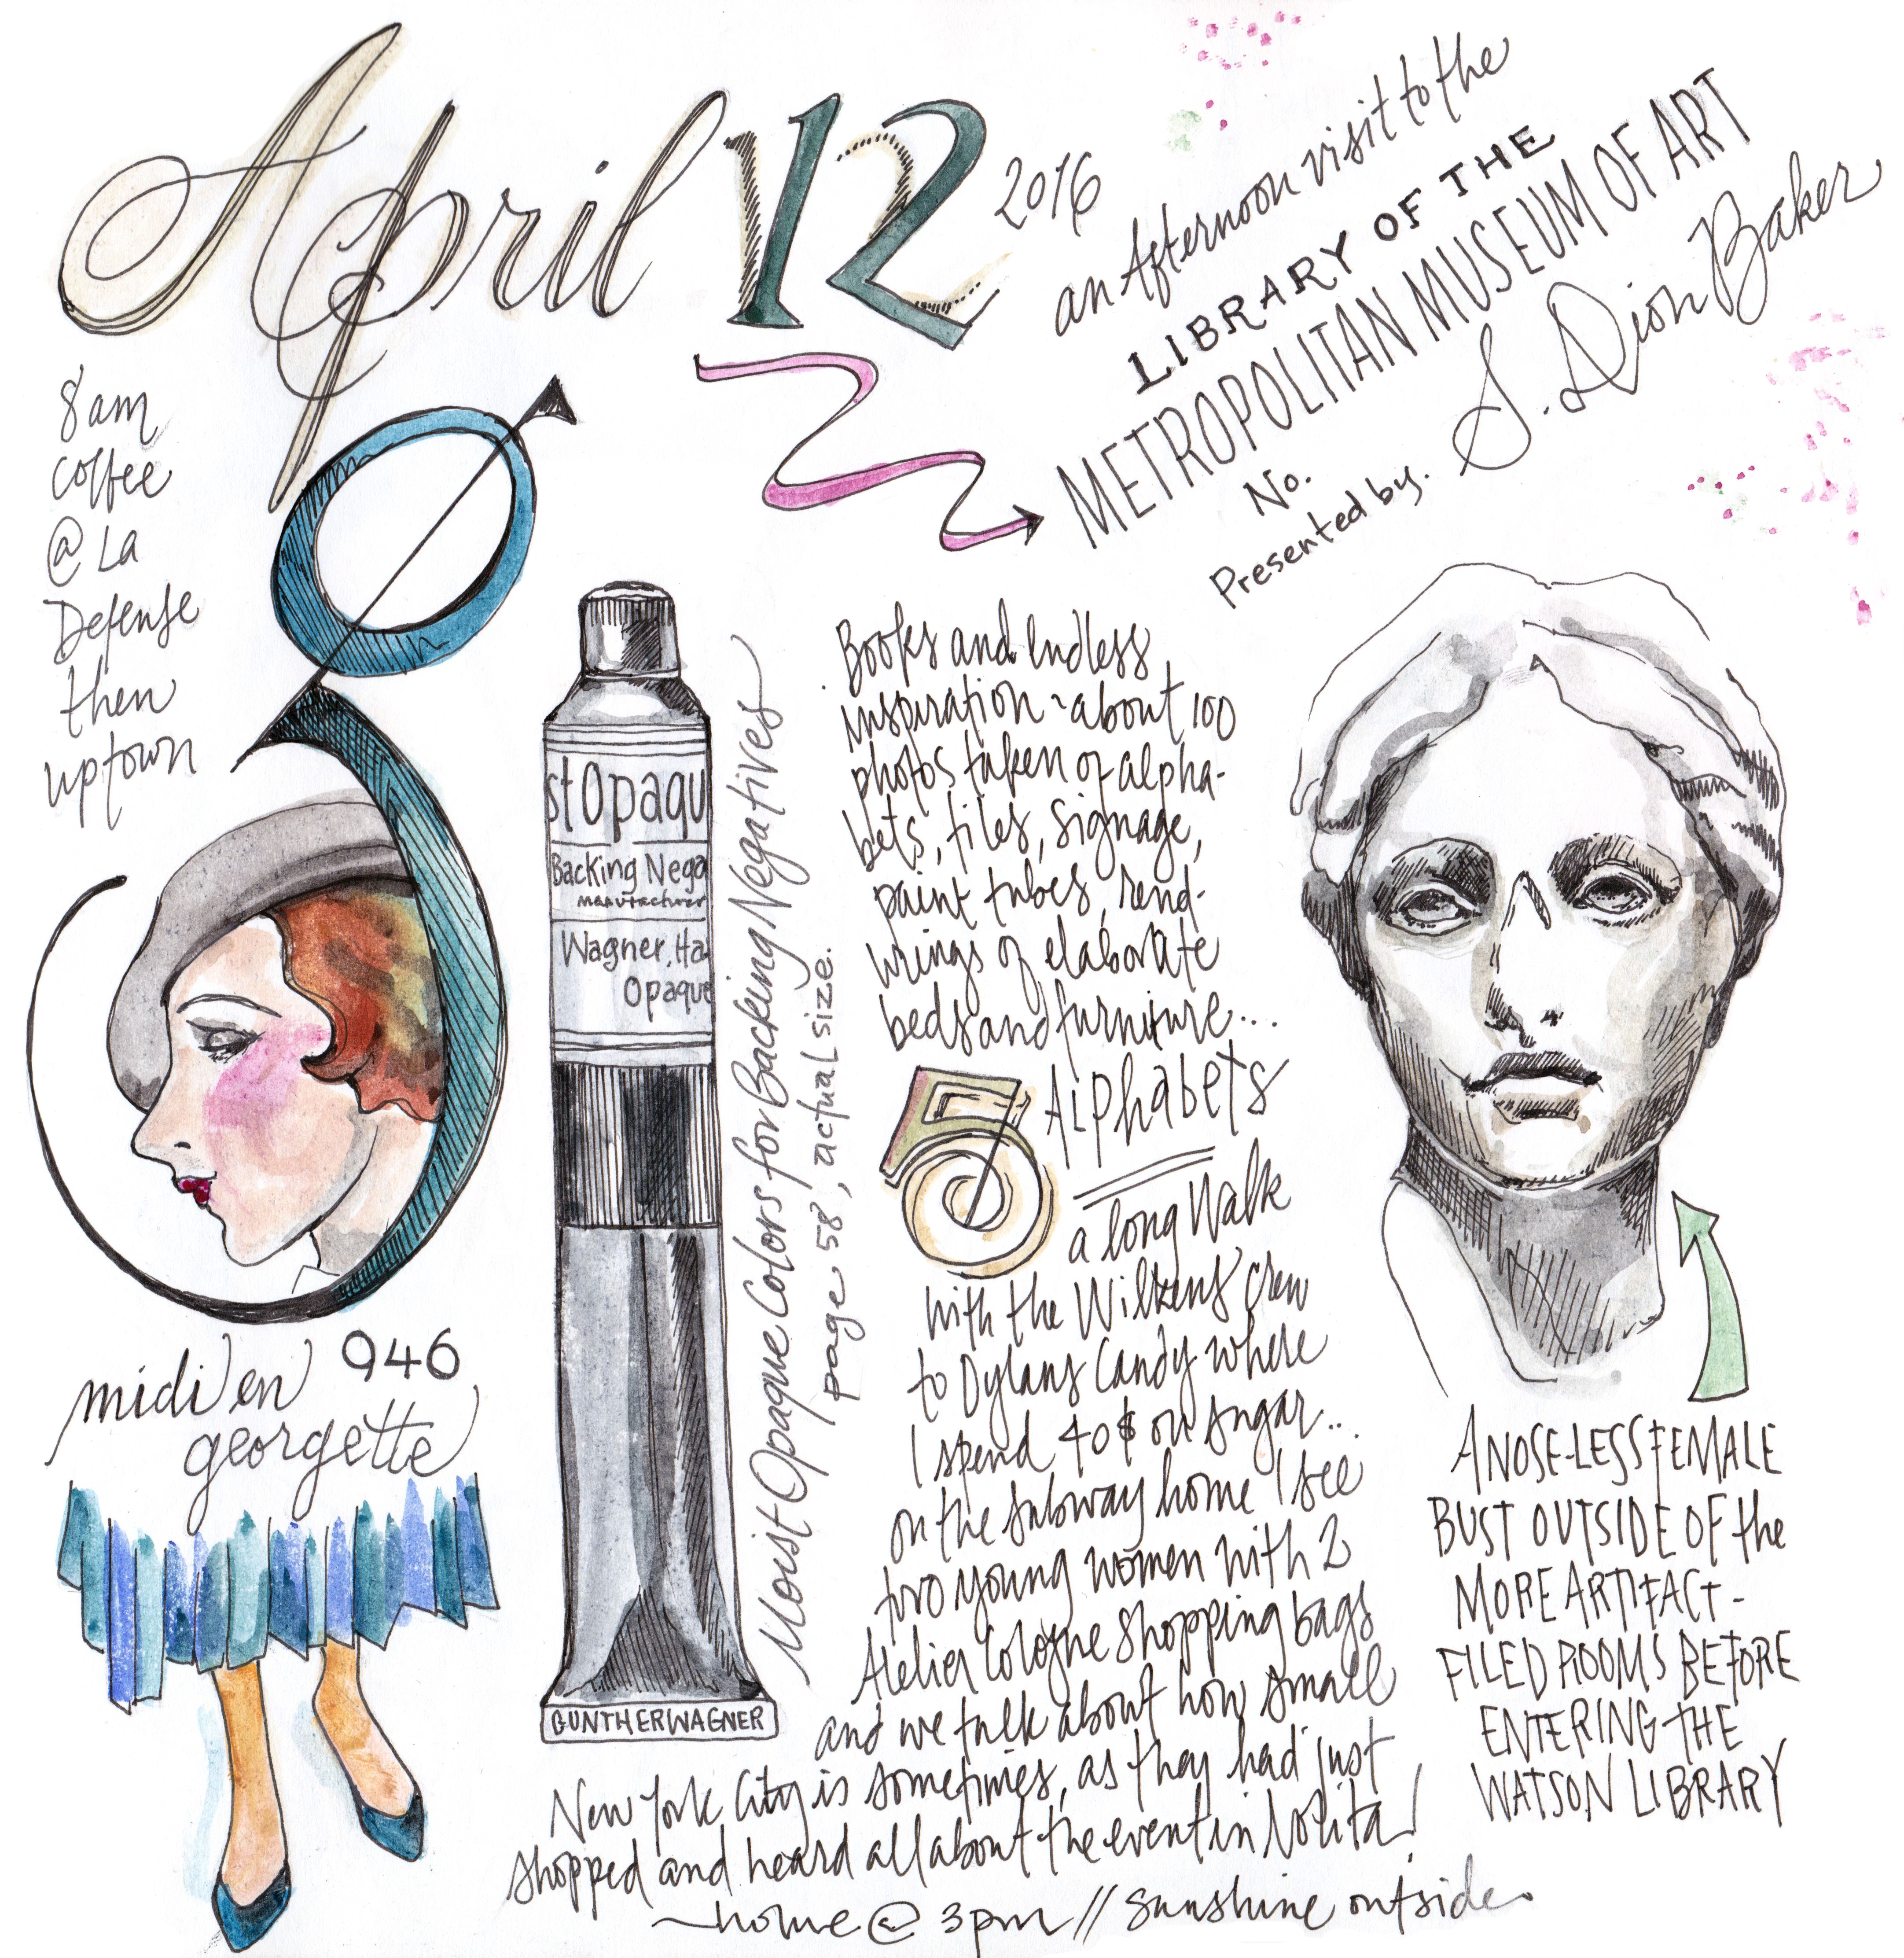 April 12 2016
an Afternoon visit to the
LIBRARY OF THE
METROPOLITAN MUSEUM OF ART
No.
Presented by. S. Dion Baker
8am
coffee
@ La
Defense
then
uptown
946
midi en
georgette
stOpaqu
Backing Nega
manufacturer
Wagner, Ha
Opaque
GUNTHERWAGNER
Moist Opaque Colors for Backing Negatives
page 58, actual size.
Books and endless
inspiration ~ about 100
photos taken of alpha-
bets, tiles, signage,
paint tubes, rend-
erings of elaborate
beds and furniture...
Alphabets
a long Walk
with the Wilkens crew
to Dylans Candy where
I spend 40$ on sugar...
on the subway home I see
two young women with 2
Atelier Cologne shopping bags
and we talk about how small
New York City is sometimes, as they had just
shopped and heard all about the event in Nolita!
home @ 3pm // sunshine outside.
A NOSE-LESS FEMALE
BUST OUTSIDE OF the
MORE ARTIFACT-
FILED ROOMS BEFORE
ENTERING THE
WATSON LIBRARY